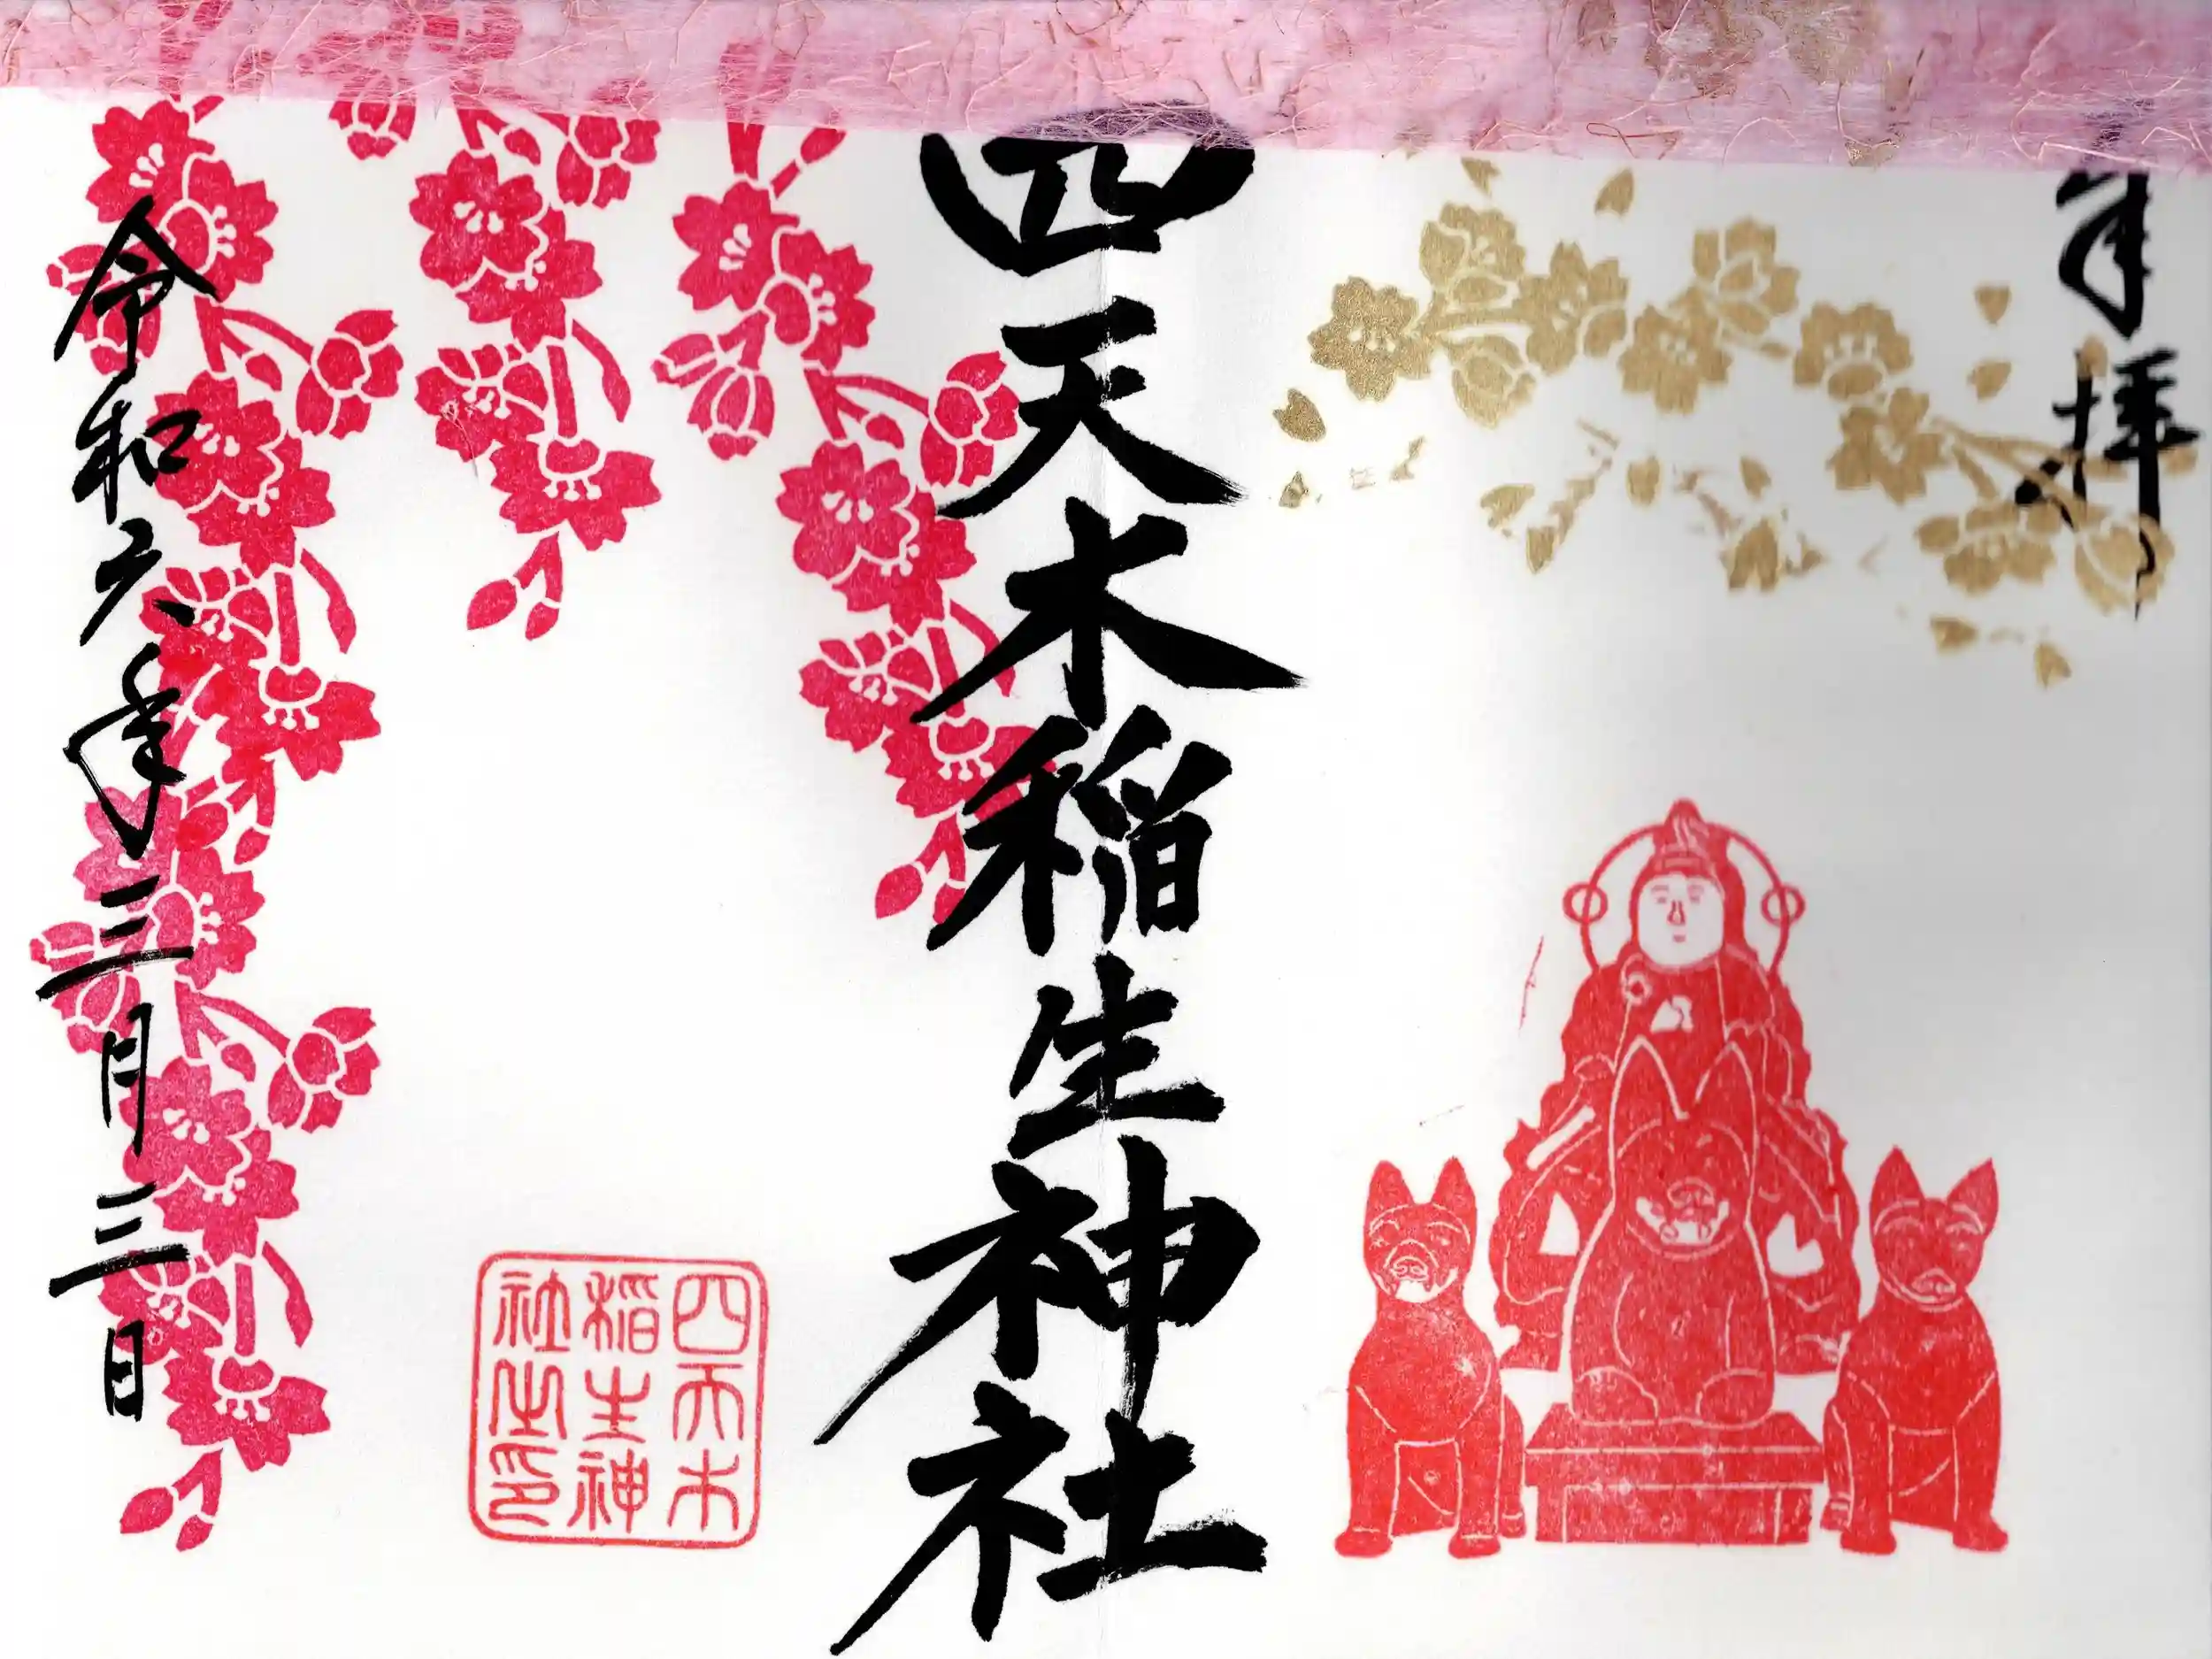 奉拝
四天木稲生神社
四天木
稲生神
社之印
令和六年三月三日